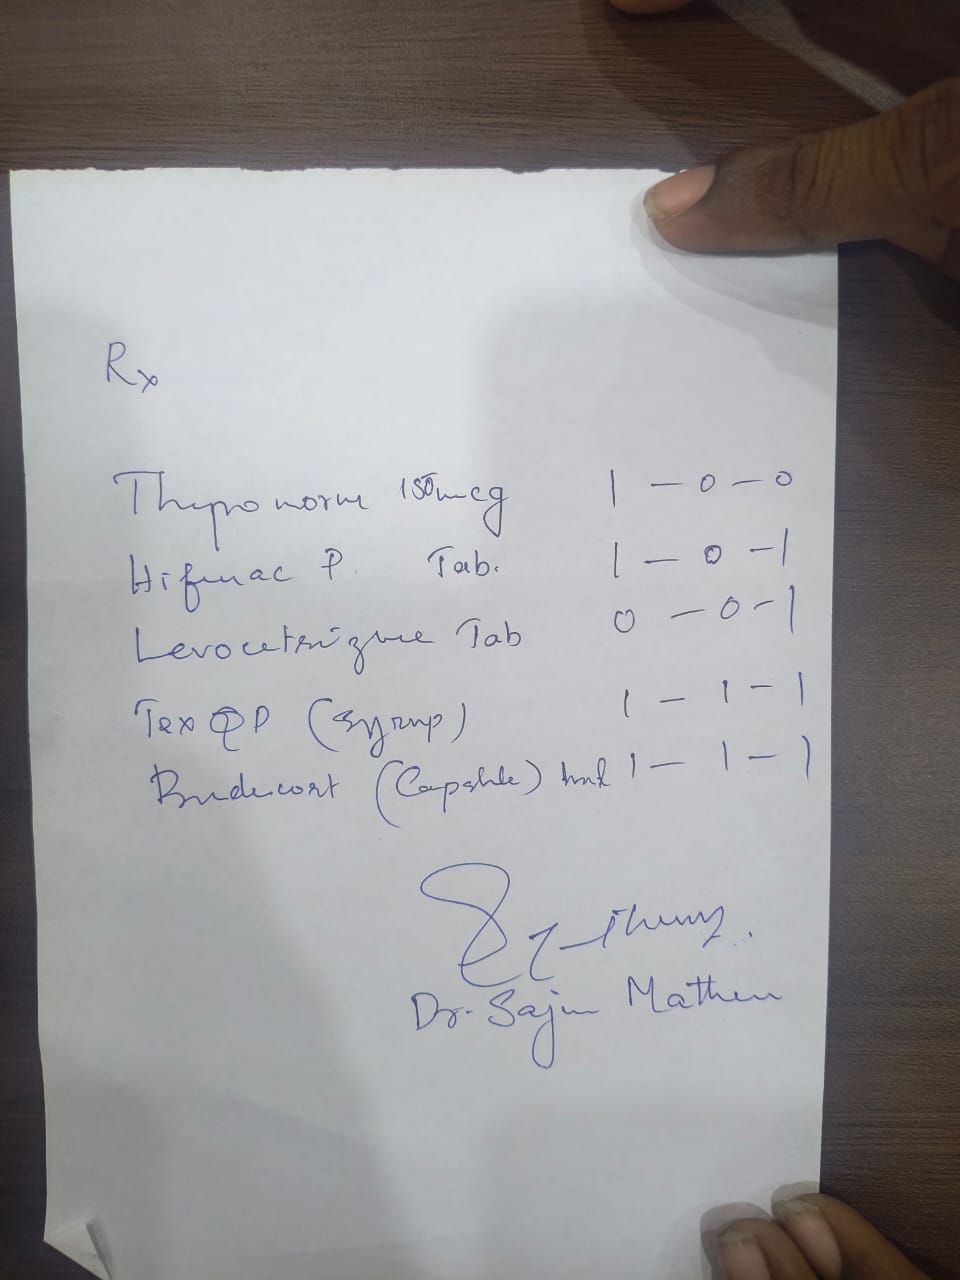 Rx
Thyronorm 150mcg 1-0-0
Hifenac P. Tab. 1-0-1
Levocetrizine Tab 0-0-1
Tex P (Syrup) 1-1-1
Budecort (Capsule) 1-1-1
Dr. Sajin Mathew